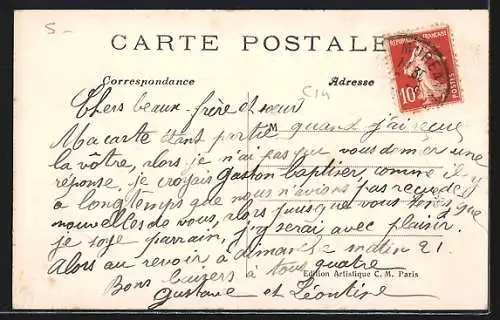 5-
CARTE POSTALE
Correspondance
Adresse
C14
REPUBLIQUE FRANÇAISE
10c
POSTES
Chers beaux-frère et sœur
Ma carte étant partie quand j'ai reçue
la vôtre, alors je n'ai pas que vous donner une
réponse, je croyais Gaston baptiser, comme il y
a longtemps que nous n'avions pas reçu de
nouvelles de vous, alors puisque vous tenez que
je soye parrain, j'y serai avec plaisir.
Alors au revoir à dimanche matin 21.
Bons baisers à tous quatre
Gustave et Léontise
Edition Artistique C. M. Paris